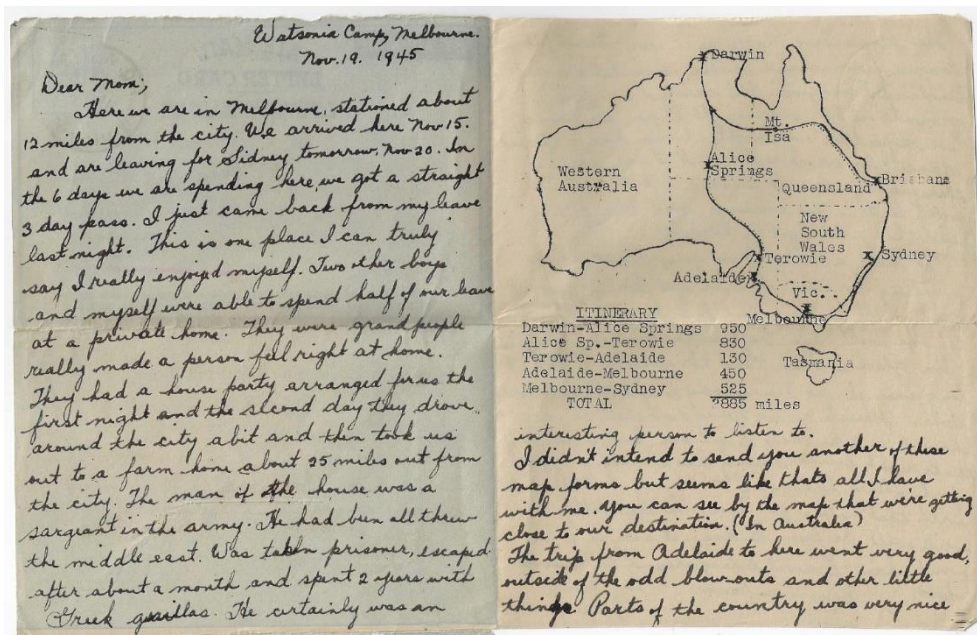 Watsonia Camp, Melbourne.
Nov. 19. 1945
Dear Mom;
Here we are in Melbourne, stationed about
12 miles from the city. We arrived here Nov 15.
and are leaving for Sidney tomorrow, Nov 20. In
the 6 days we are spending here, we got a straight
3 day pass. I just came back from my leave
last night. This is one place I can truly
say I really enjoyed myself. Two other boys
and myself were able to spend half of our leave
at a private home. They were grand people
really made a person feel right at home.
They had a house party arranged for us the
first night and the second day they drove
around the city abit and then took us
out to a farm home about 25 miles out from
the city. The man of the house was a
sargeant in the army. He had been all threw
the middle east. Was taken prisoner, escaped
after about a month and spent 2 years with
Greek guerillas. He certainly was an
Darwin
Mt.
Isa
Alice
Springs
Western
Australia
Queensland
Brisbane
New
South
Wales
Terowie
Sydney
Adelaide
Vic.
Melbourne
Tasmania
ITINERARY
Darwin-Alice Springs 950
Alice Sp.-Terowie 830
Terowie-Adelaide 130
Adelaide-Melbourne 450
Melbourne-Sydney 525
TOTAL 2885 miles
interesting person to listen to.
I didn't intend to send you another of these
map forms but seems like thats all I have
with me. You can see by the map that were getting
close to our destination. (In Australia)
The trip from Adelaide to here went very good,
outside of the odd blow-outs and other little
things. Parts of the country was very nice